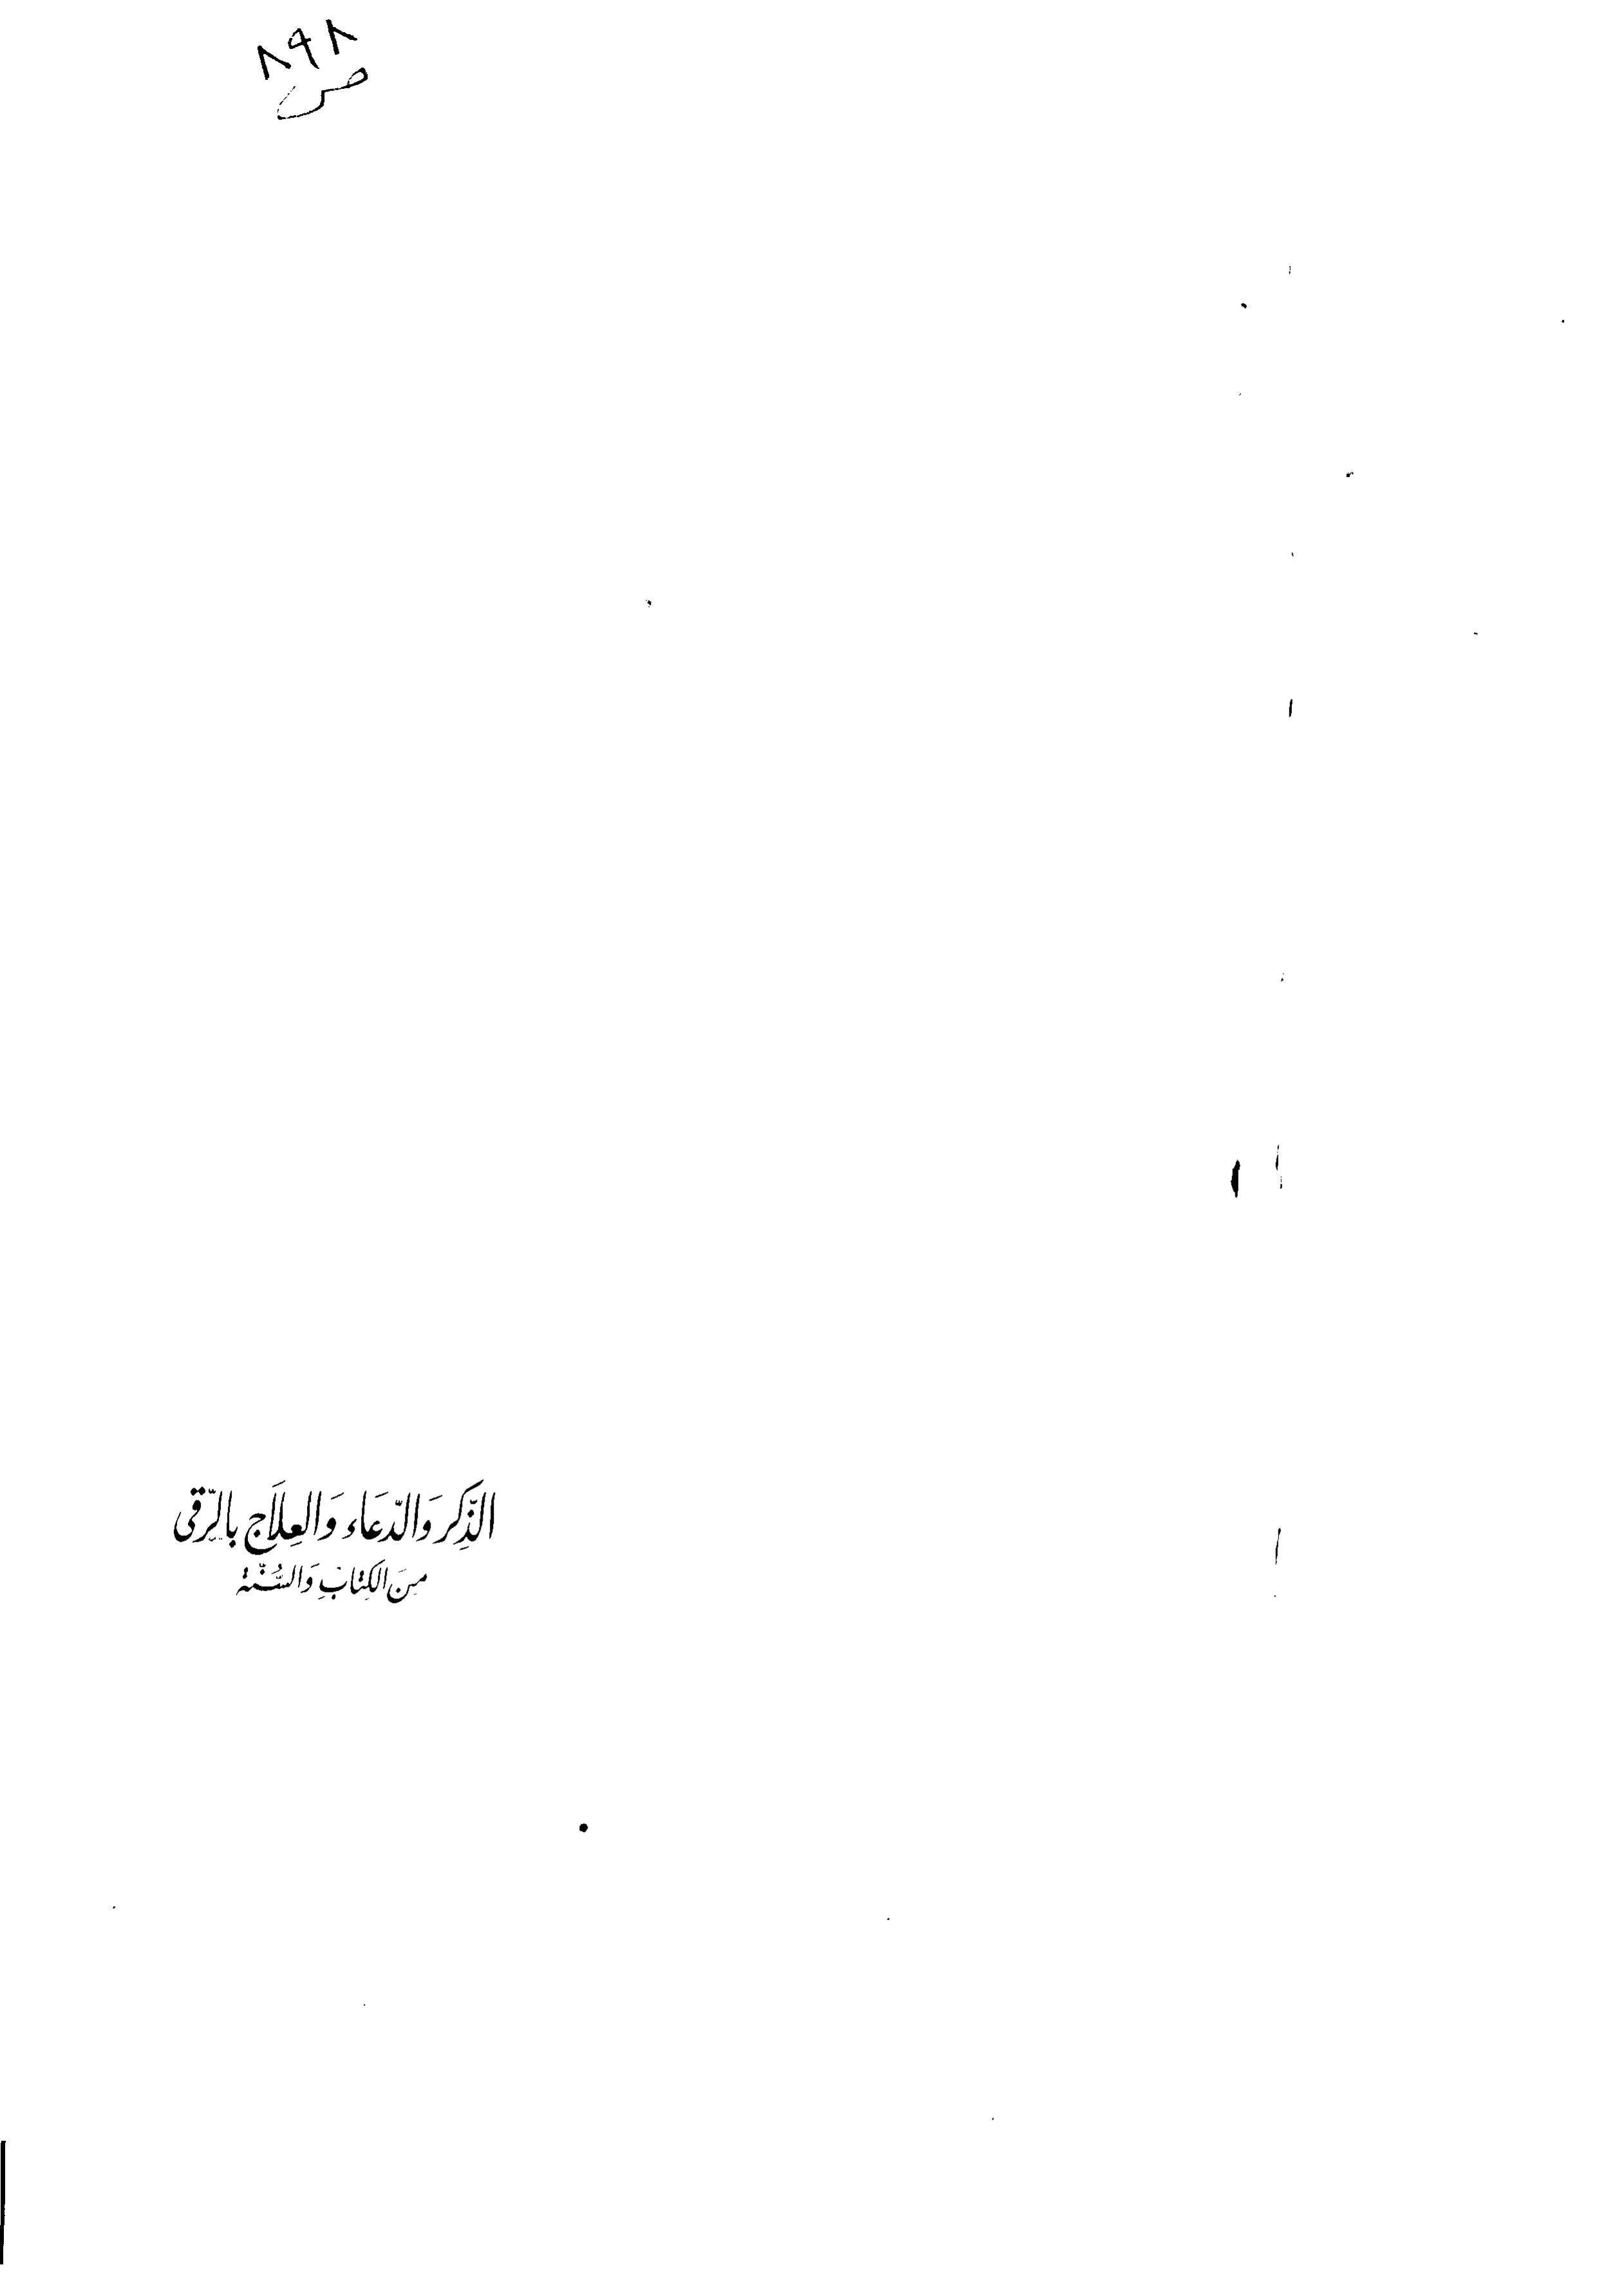 ٨٩٨
ص
الذِّكر وَالدّعَاء وَالعِلَاج بالرّقى
مِنَ الكِتابِ وَالسُّنّة